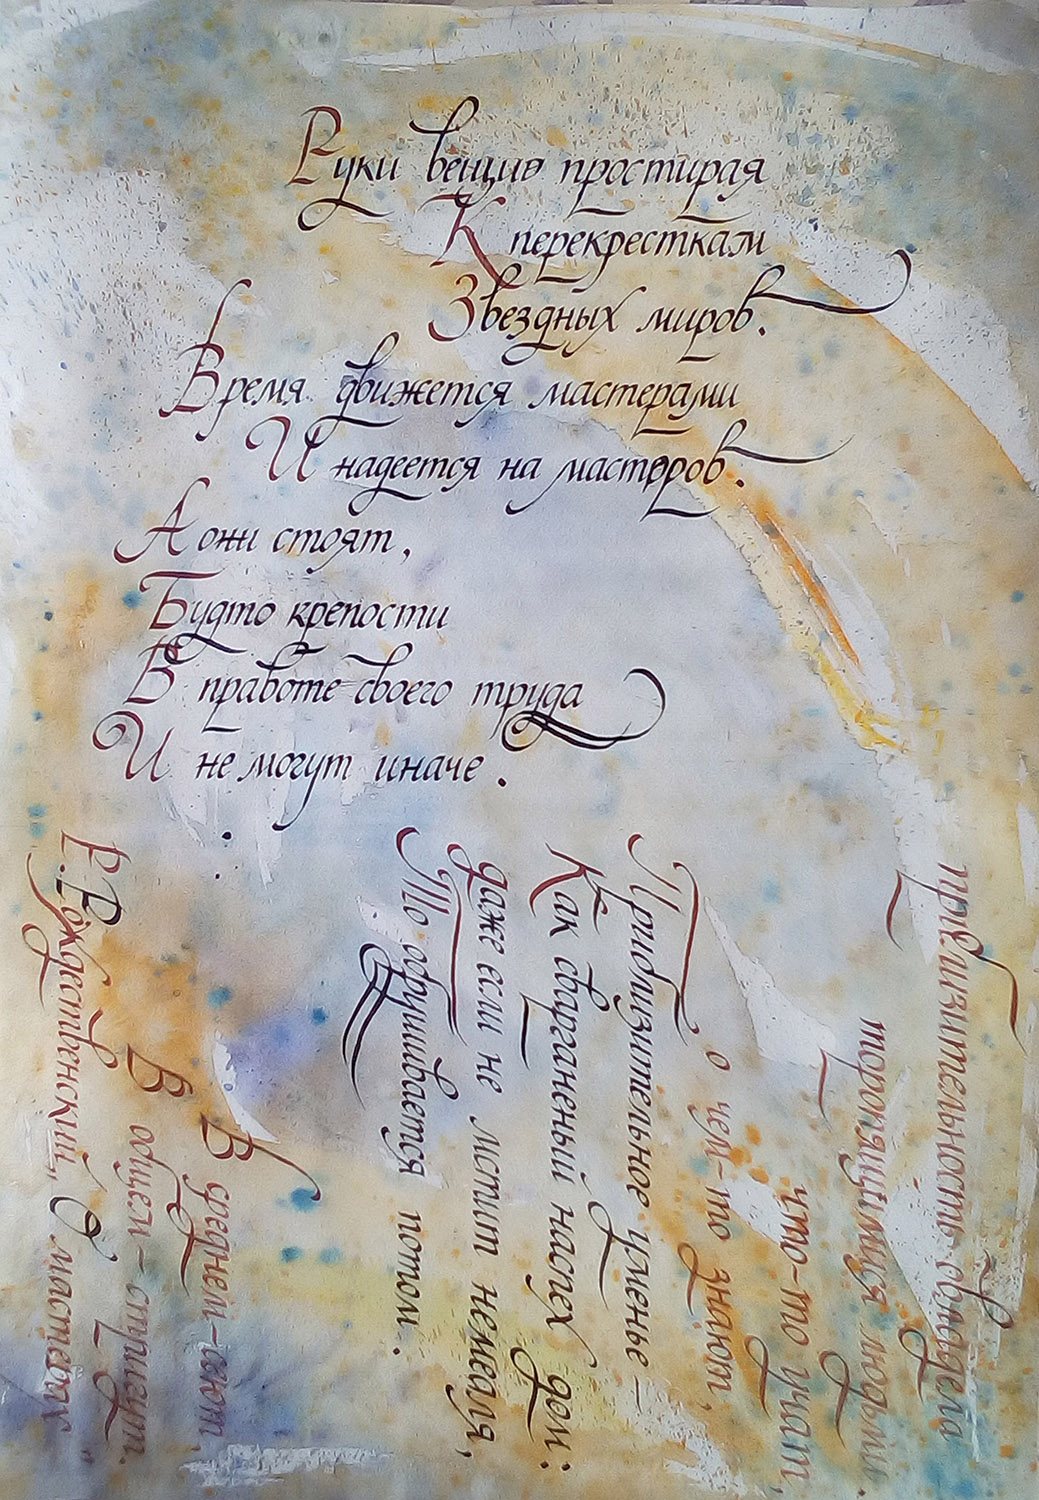 Руки вещие простирая
К перекресткам
Звездных миров.
Время движется мастерами
И надеется на мастеров.
А они стоят,
Будто крепости
В правоте своего труда
И не могут иначе.
приблизительность овладела
торопящимися людьми
что-то учат,
о чем-то знают,
Приблизительное уменье –
Как сварганеный наспех дом:
даже если не мстит немедля,
То обрушивается потом.
В среднем-сеют,
В общем-стригут.
Р. Рождественский, О мастерах